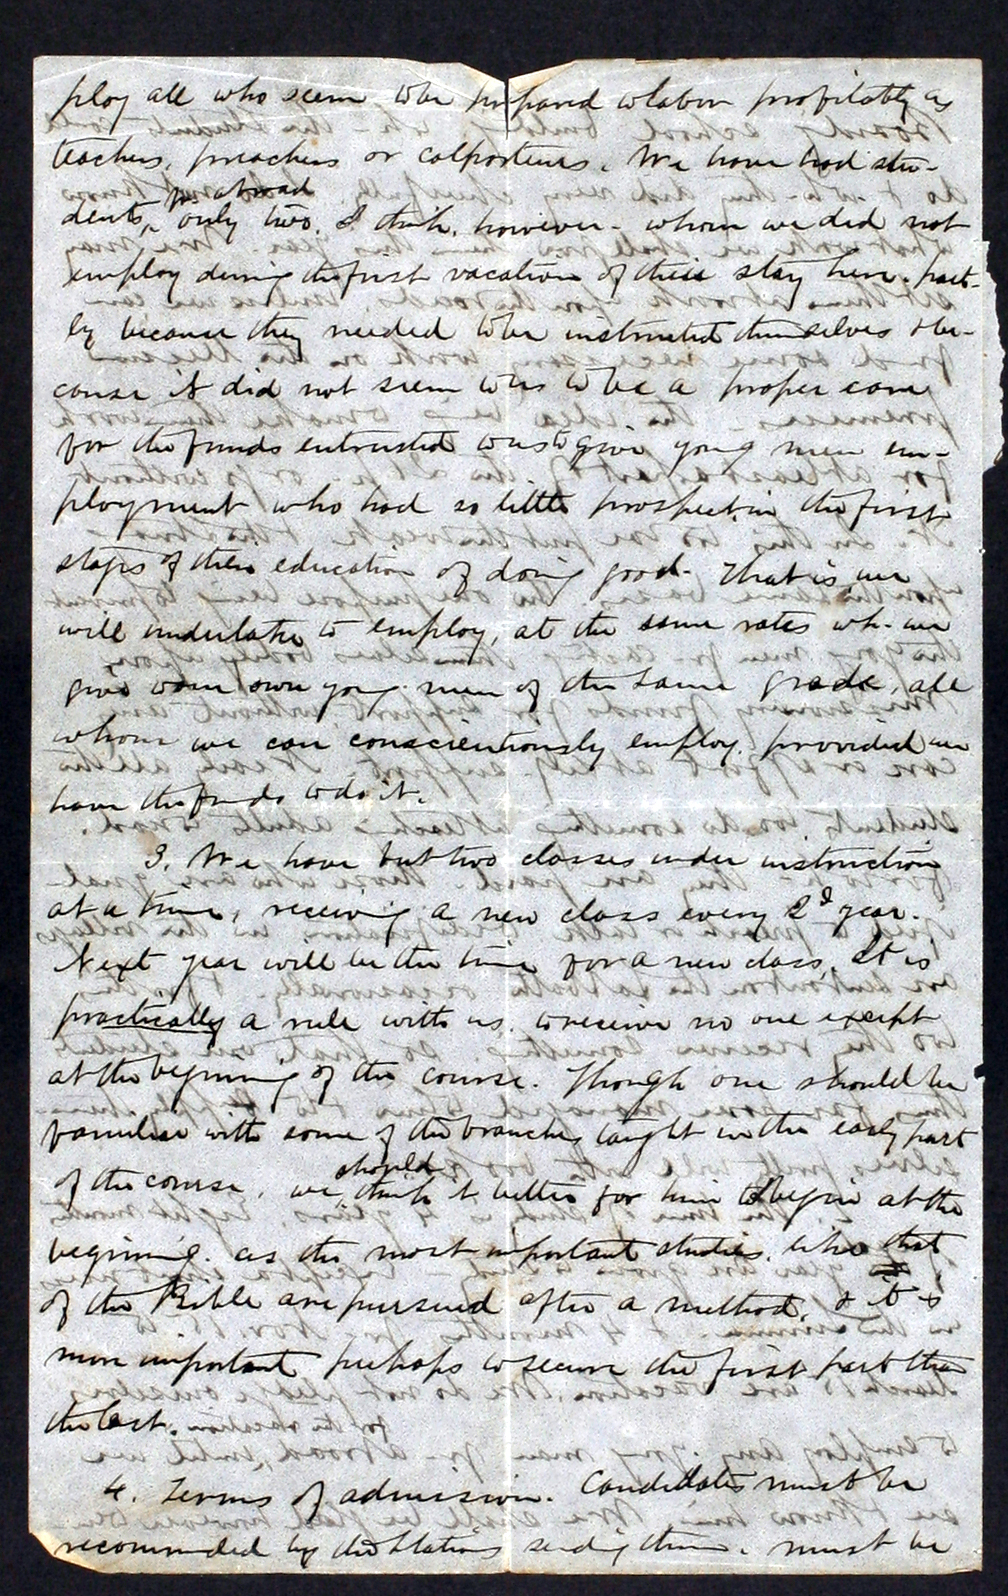 ploy all who seem to be prepared to labor profitably as
teachers, preachers or colporteurs. We have had stu-
dents, fr. abroad only two, I think, however - whom we did not
employ during the first vacation of their stay here - part-
ly because they needed to be instructed themselves & be-
cause it did not seem to us to be a proper
for the funds entrusted to us to give young men em-
ployment who had so little prospect in the first
steps of their education of doing good. That is we
will undertake to employ, at the same rates wh. we
give to our own young men of the same grade, all
whom we can conscientiously employ, provided we
have the funds to do it.
3. We have but two classes under instruction
at a time, receiving a new class every 2d year.
Next year will be the time for a new class. It is
practically a rule with us to receive no one except
at the beginning of the course. Though one should be
familiar with some of the branches taught in the early part
of the course, we should think it better for him to begin at the
beginning. as the most important studies, like that
of the Bible are pursued after a method, & it is
more important perhaps to secure the first part than
the last.
4. Terms of admission. Candidates must be
recommended by the Stations sending them, must be